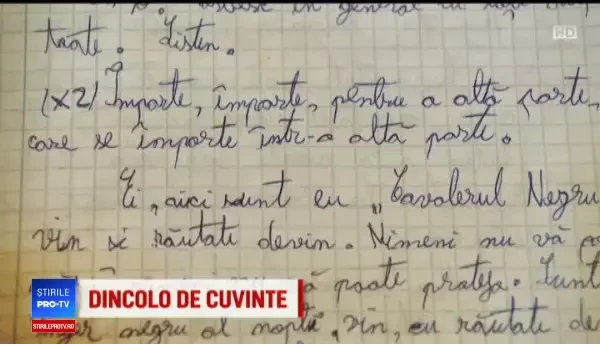 în general cu
toate. Listen.
HD
(x2) Împarte, împarte, pentru o altă parte,
care se împarte într-o altă parte.
Ei, aici sunt eu "Cavalerul Negru
vin și răutate devin. Nimeni nu vă
poate proteja. Sunt
ȘTIRILE
PRO•TV
DINCOLO DE CUVINTE
STIRILEPROTV.RO
negru al nopții, vin, eu răutate de